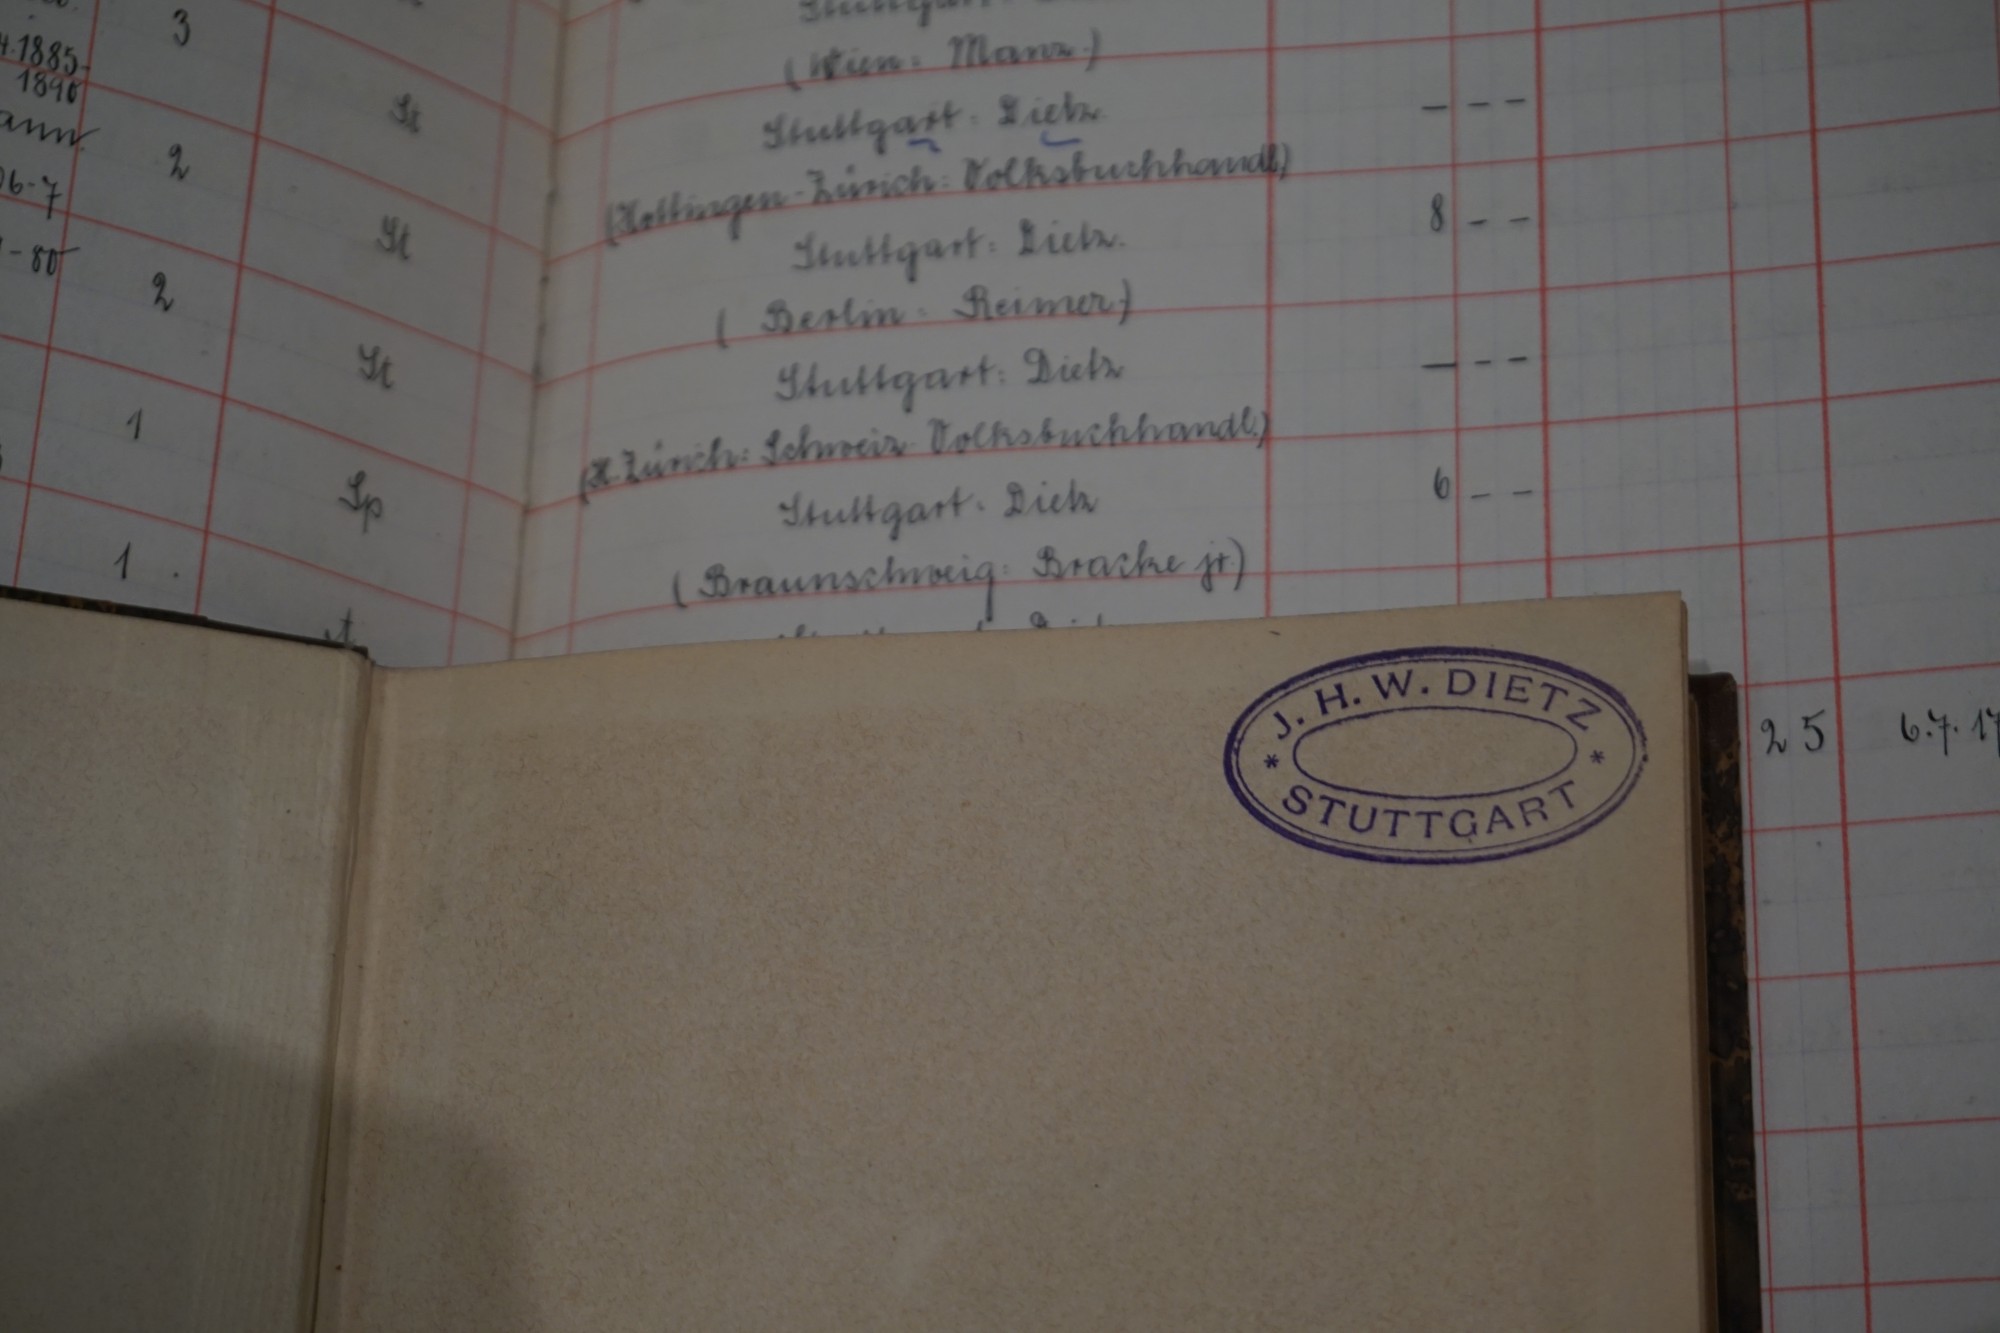 3
1885-
1890
St
(Wien: Manz.)
Stuttgart: Dietz. — - -
2
06-7
St
(Hottingen-Zürich: Volksbuchhandl.)
Stuttgart: Dietz. 8 - -
-80
2
St
(Berlin: Reimer.)
Stuttgart: Dietz — - -
1
Sp
(H. Zürich: Schweiz. Volksbuchhandl.)
Stuttgart: Dietz 6 - -
1
(Braunschweig: Bracke jr.)
J. H. W. DIETZ
* *
STUTTGART
25 6.7.17